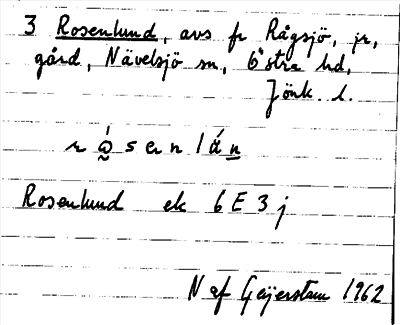 3 Rosenlund, avs fr Rågsjö, jr,
gård, Nävelsjö sn, Östra hd,
Jönk. l.
Rosenlund ek 6E3j
N af Geijerstam 1962